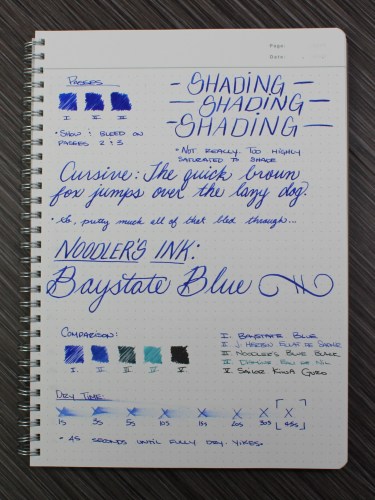 Page:
Date:
PASSES
I II III
• SHOW & BLEED ON
PASSES 2 & 3
- SHADING -
- SHADING -
- SHADING -
* NOT REALLY. TOO HIGHLY
SATURATED TO SHADE
Cursive: The quick brown
fox jumps over the lazy dog.
pretty much all of that bled through...
NOODLER'S INK:
Baystate Blue
COMPARISON:
I II III IV V
I. BAYSTATE BLUE
II. J. HERBIN
III. NOODLER'S BLUE BLACK
IV. DIAMINE EAU DE NIL
V. SAILOR KIWA GURO
DRY TIME:
1s 3s 5s 10s 20s 30s 45s
• 45 SECONDS UNTIL FULLY DRY. YIKES.